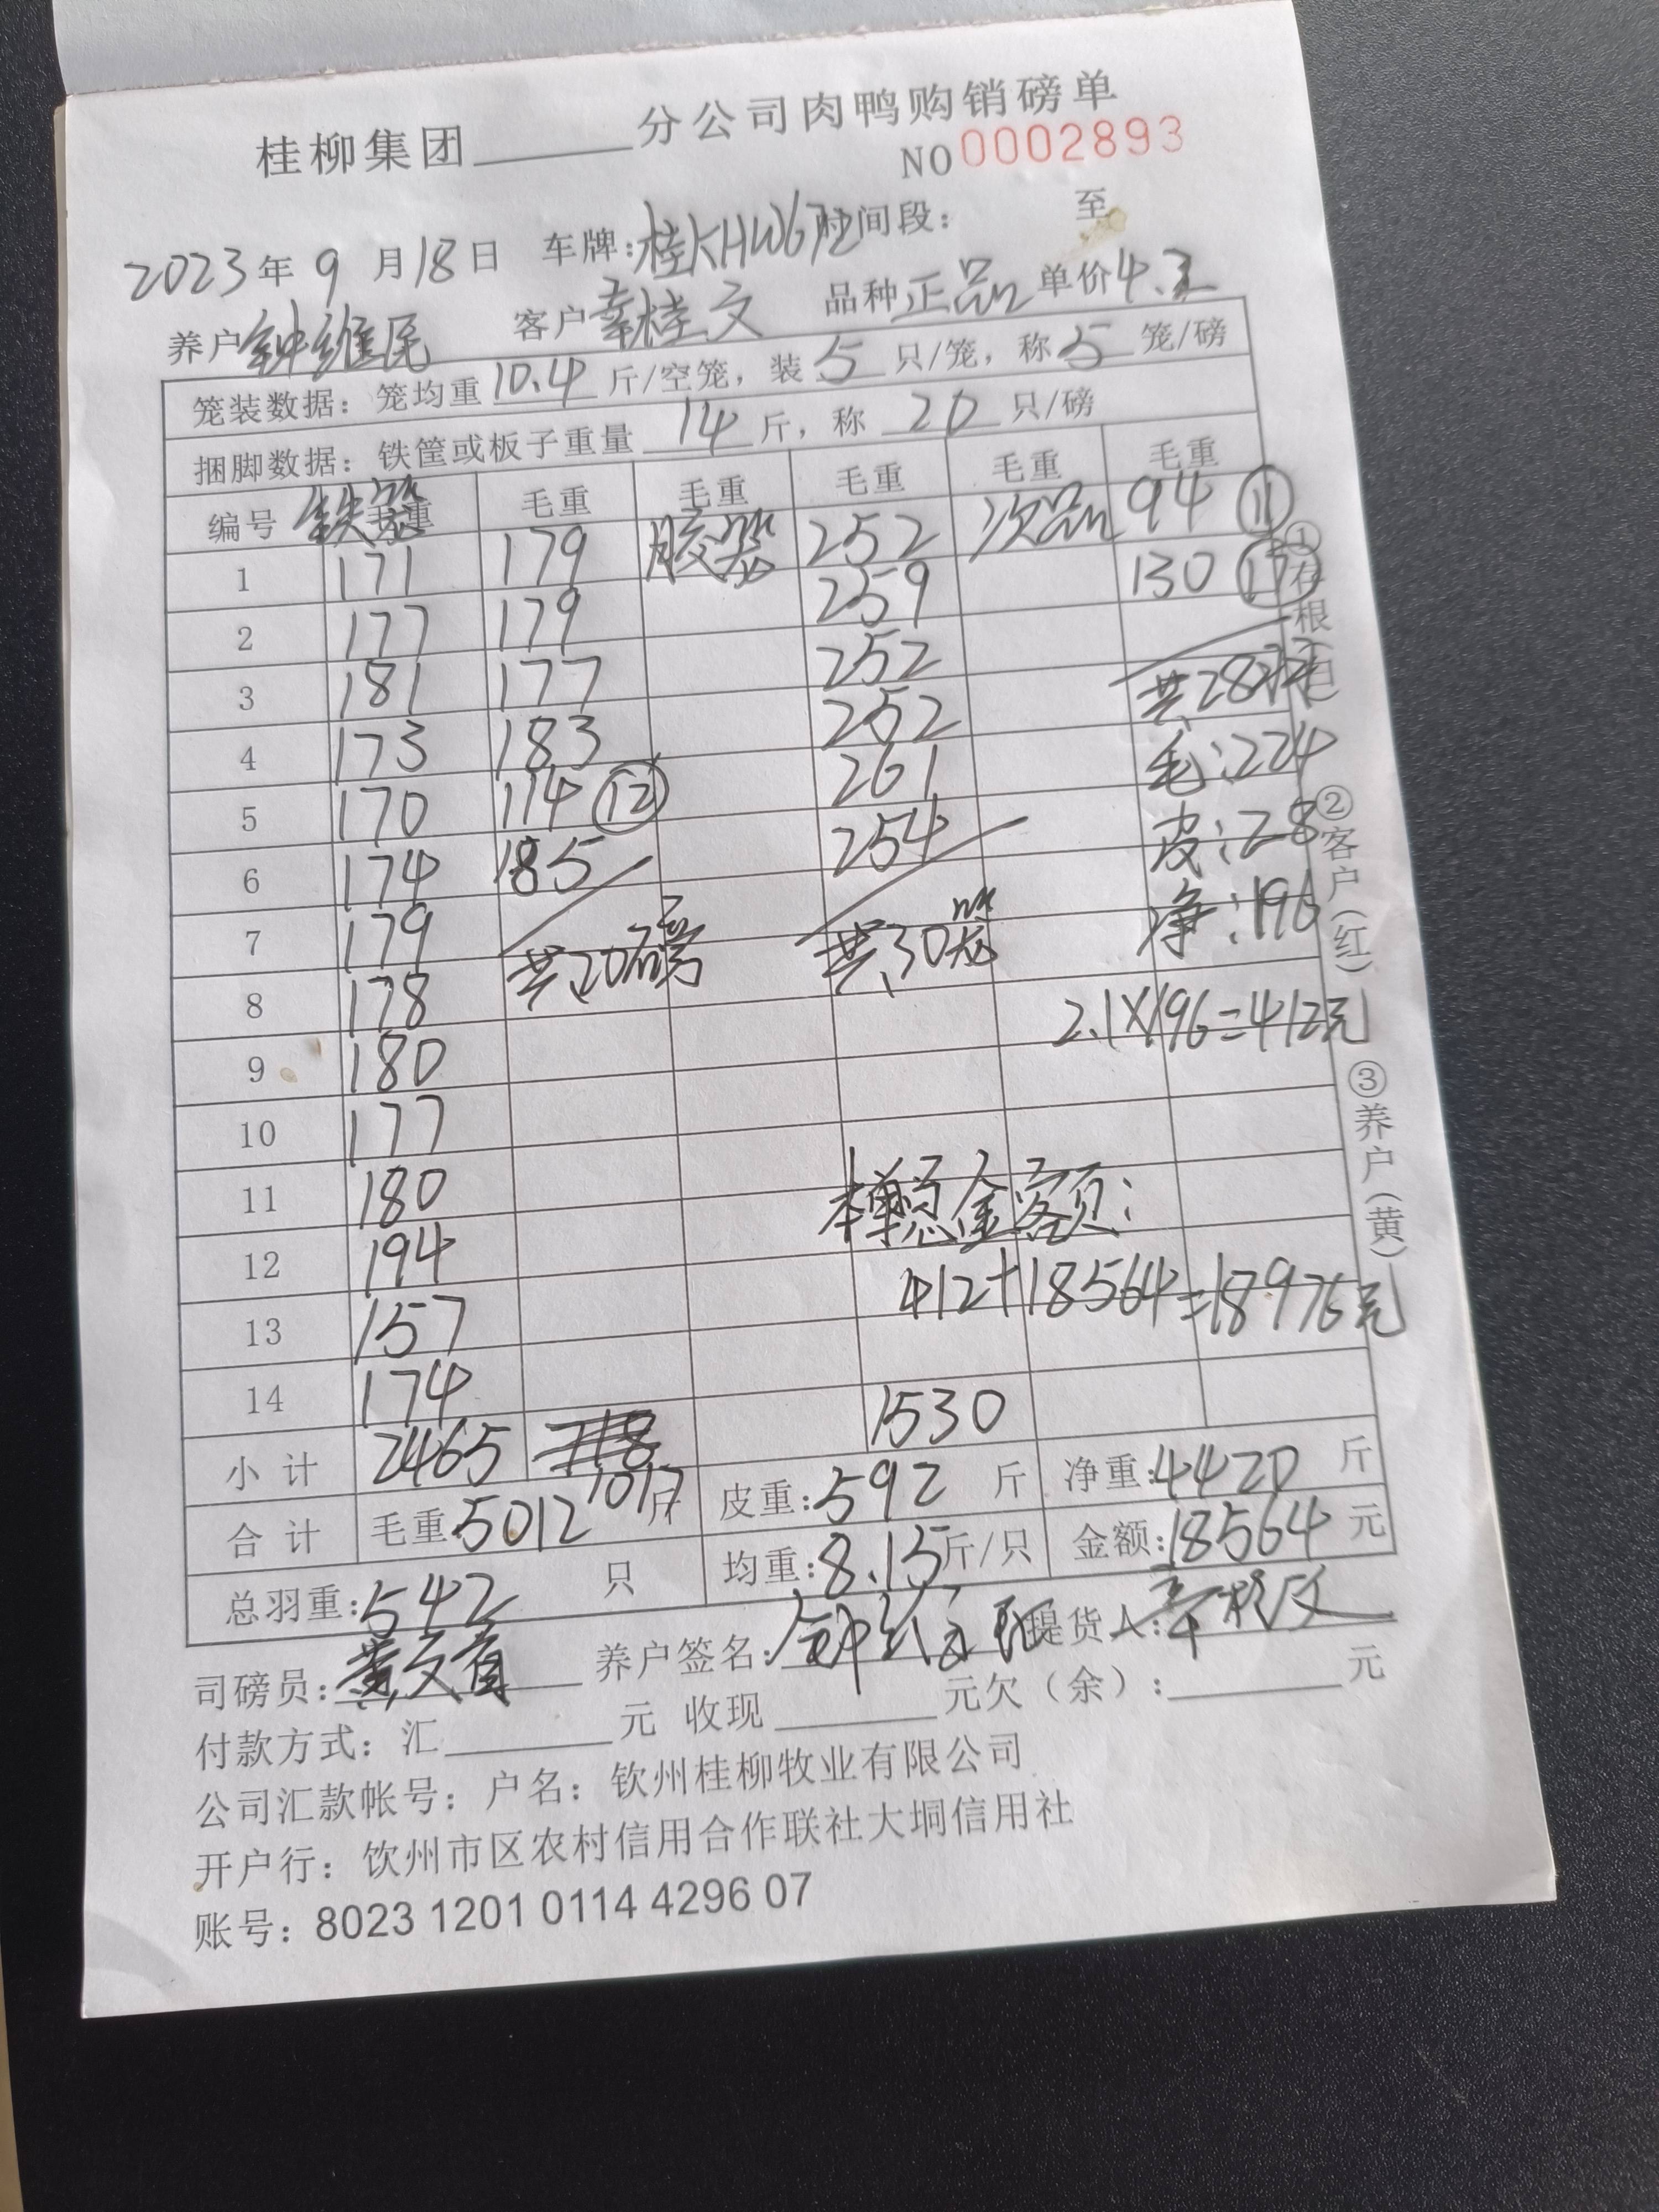 桂柳集团______分公司肉鸭购销磅单
NO 0002893
2023年 9 月 18 日 车牌:桂KHW67 时间段: 至
养户 钟维 客户 辛桂文 品种 正品 单价 4.2
笼装数据: 笼均重 10.4 斤/空笼, 装 5 只/笼, 称 5 笼/磅
捆脚数据: 铁筐或板子重量 14 斤, 称 20 只/磅
编号 铁笼 毛重 毛重 毛重 毛重 毛重
1 171 179 胶笼 252 次品 94 ⑪
2 177 179 259 130 ⑰
3 181 177 252 共28只
4 173 183 252 毛:224
5 170 114 ⑫ 261 皮:28
6 174 185 254 净:196
7 179 共20磅 共30笼
8 178 2.1×196=412元
9 180
10 177
11 180 本单总金额:
12 194 412+18564=18976元
13 157
14 174
小计 2465 1017 1530
合计 毛重:5012 斤 皮重:592 斤 净重:4420 斤
总羽重:542 只 均重:8.15 斤/只 金额:18564 元
司磅员:黄文 养户签名:钟 提货人:辛桂文
付款方式: 汇______元 收现______元欠(余):______元
公司汇款帐号: 户名: 钦州桂柳牧业有限公司
开户行: 钦州市区农村信用合作联社大垌信用社
账号: 8023 1201 0114 4296 07
①存根(白)
②客户(红)
③养户(黄)